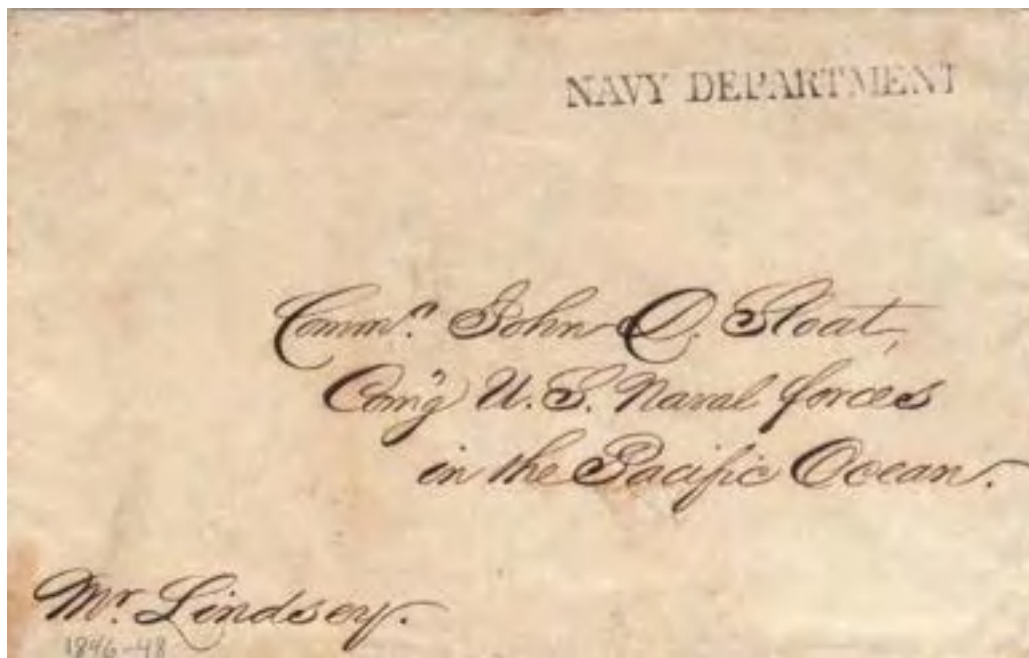 NAVY DEPARTMENT
Commr. John D. Sloat,
Com'g U.S. Naval forces
in the Pacific Ocean.
Mr. Lindsey.
1846-48